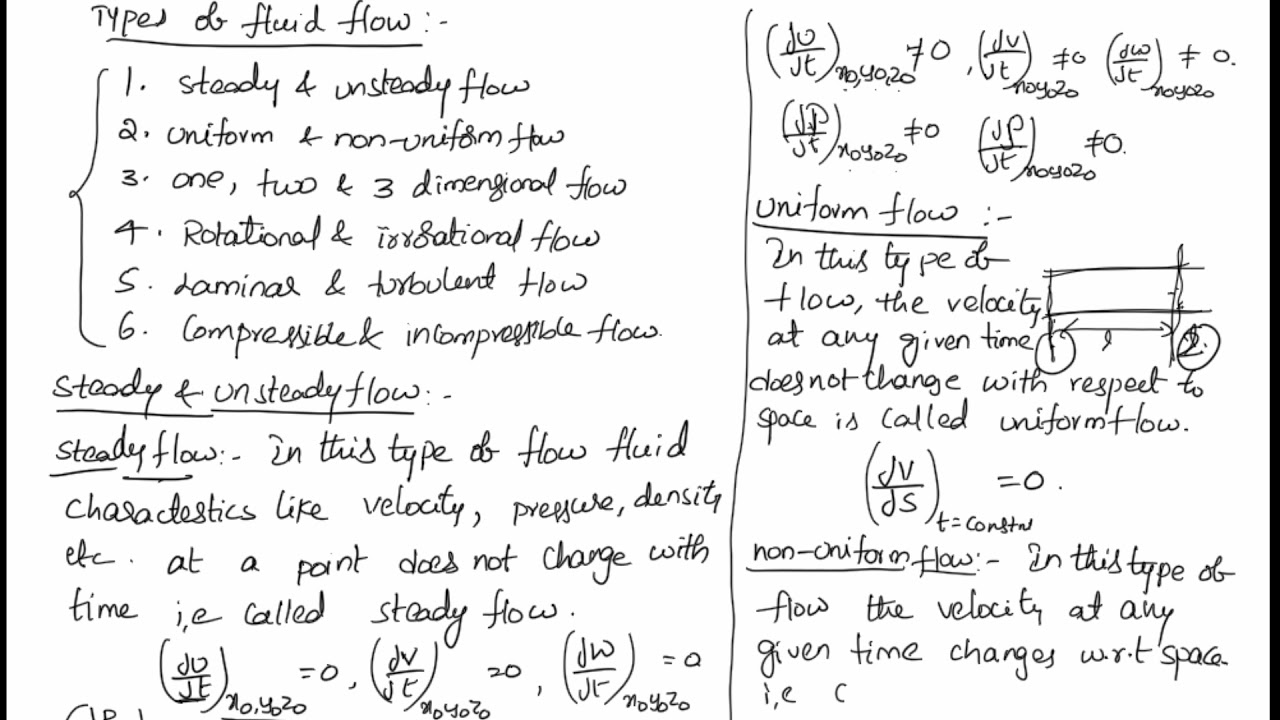 Types of fluid flow :-
1. steady & unsteady flow
2. uniform & non-uniform flow
3. one, two & 3 dimensional flow
4. Rotational & irrational flow
5. Laminar & turbulent flow
6. Compressible & incompressible flow.
steady & unsteady flow :-
steady flow:- In this type of flow fluid
charactestics like velocity, pressure, density
etc. at a point does not change with
time i,e called steady flow.
(∂u/∂t)x0,y0z0 =0, (∂v/∂t)x0y0z0 =0, (∂w/∂t)x0y0z0 =0
(∂u/∂t)x0,y0,z0 ≠0, (∂v/∂t)x0y0z0 ≠0 (∂w/∂t)x0y0z0 ≠ 0.
(∂p/∂t)x0y0z0 ≠0 (∂ρ/∂t)x0y0z0 ≠0.
uniform flow :-
In this type of
flow, the velocity
at any given time
1 l 2
does not change with respect to
space is called uniform flow.
(∂v/∂s)t=constnt =0.
non-uniform flow:- In this type of
flow the velocity at any
given time changes w.r.t space.
i,e (